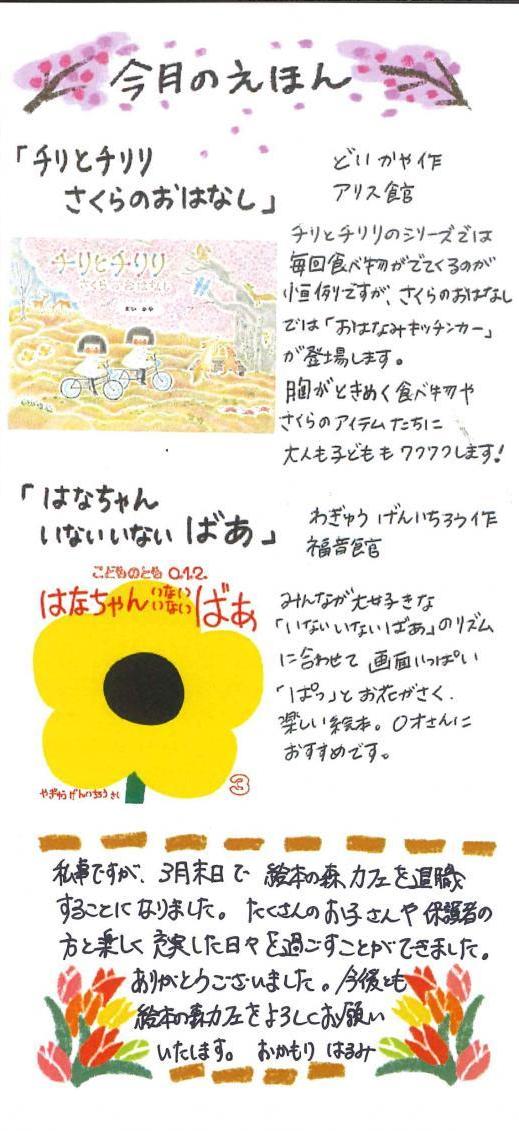 今月のえほん
「チリとチリリ
さくらのおはなし」
どい かや作
アリス館
チリとチリリ
さくらのおはなし
どい かや
チリとチリリのシリーズでは
毎回食べ物がでてくるのが
恒例ですが、さくらのおはなし
では「おはなみキッチンカー」
が登場します。
胸がときめく食べ物や
さくらのアイテムたちに
大人も子どももワクワクします!
「はなちゃん
いないいない ばあ」
わぎゅう げんいちろう作
福音館
こどものとも 0.1.2.
はなちゃん いない いない ばあ
やぎゅうげんいちろう さく
3
みんなが大好きな
「いないいないばあ」のリズム
に合わせて 画面いっぱい
「ぱっ」とお花がさく、
楽しい絵本。0才さんに
おすすめです。
私事ですが、3月末日で 絵本の森カフェを退職
することになりました。たくさんのお子さんや保護者の
方と楽しく充実した日々を過ごすことができました。
ありがとうございました。今後とも
絵本の森カフェをよろしくお願い
いたします。 おかもり はるみ